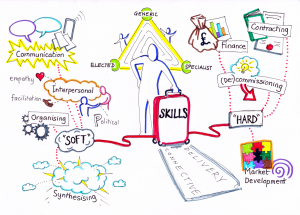 GENERIC
Communication
£
Finance
Contracting
ELECTED
SPECIALIST
(De)commissioning
empathy
Interpersonal
facilitation
Political
Organising
SKILLS
"SOFT"
"HARD"
DELIVERY
CONNECTIVE
Synthesising
Market
Development